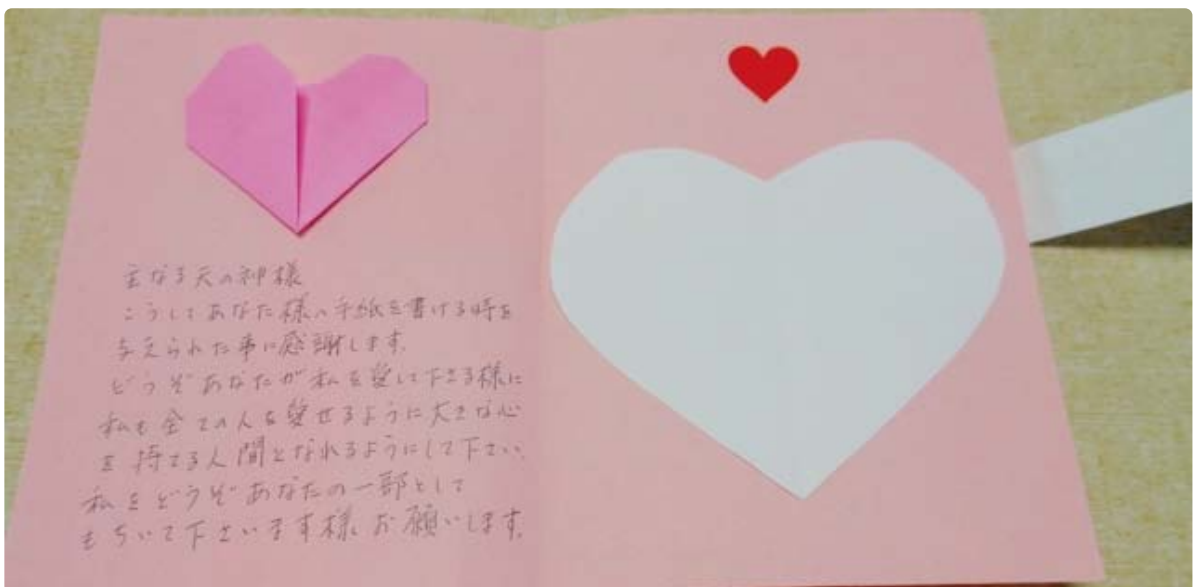 主なる天の神様
こうしてあなた様へ手紙を書ける時を
与えられた事に感謝します。
どうぞあなたが私を愛して下さる様に
私も全ての人を愛せるように大きな心
を持てる人間となれるようにして下さい。
私をどうぞあなたの一部として
もちいて下さいます様お願いします。